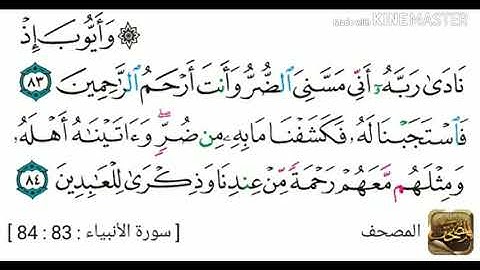 Made with KINEMASTER
۞ وَأَيُّوبَ إِذْ
نَادَىٰ رَبَّهُۥٓ أَنِّى مَسَّنِىَ ٱلضُّرُّ وَأَنتَ أَرْحَمُ ٱلرَّٰحِمِينَ ٨٣
فَٱسْتَجَبْنَا لَهُۥ فَكَشَفْنَا مَا بِهِۦ مِن ضُرٍّۢ ۖ وَءَاتَيْنَٰهُ أَهْلَهُۥ
وَمِثْلَهُم مَّعَهُمْ رَحْمَةًۭ مِّنْ عِندِنَا وَذِكْرَىٰ لِلْعَٰبِدِينَ ٨٤
المصحف [ سورة الأنبياء : 83 : 84 ]